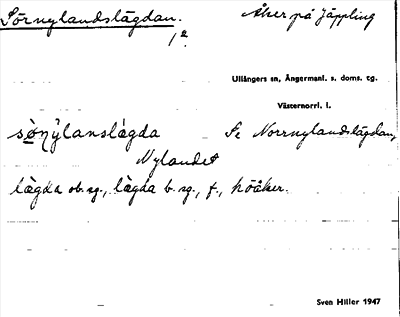 Sörnylandslägdan. Åker på Jäppling
1 a.
Ullångers sn, Ångermanl. s. doms. tg.
Västernorrl. l.
sø̀nỳlanslágda Se Norrnylandslägdan,
Nylandet
lägda ob. sg., lägda b. sg., f., höåker.
Sven Hiller 1947